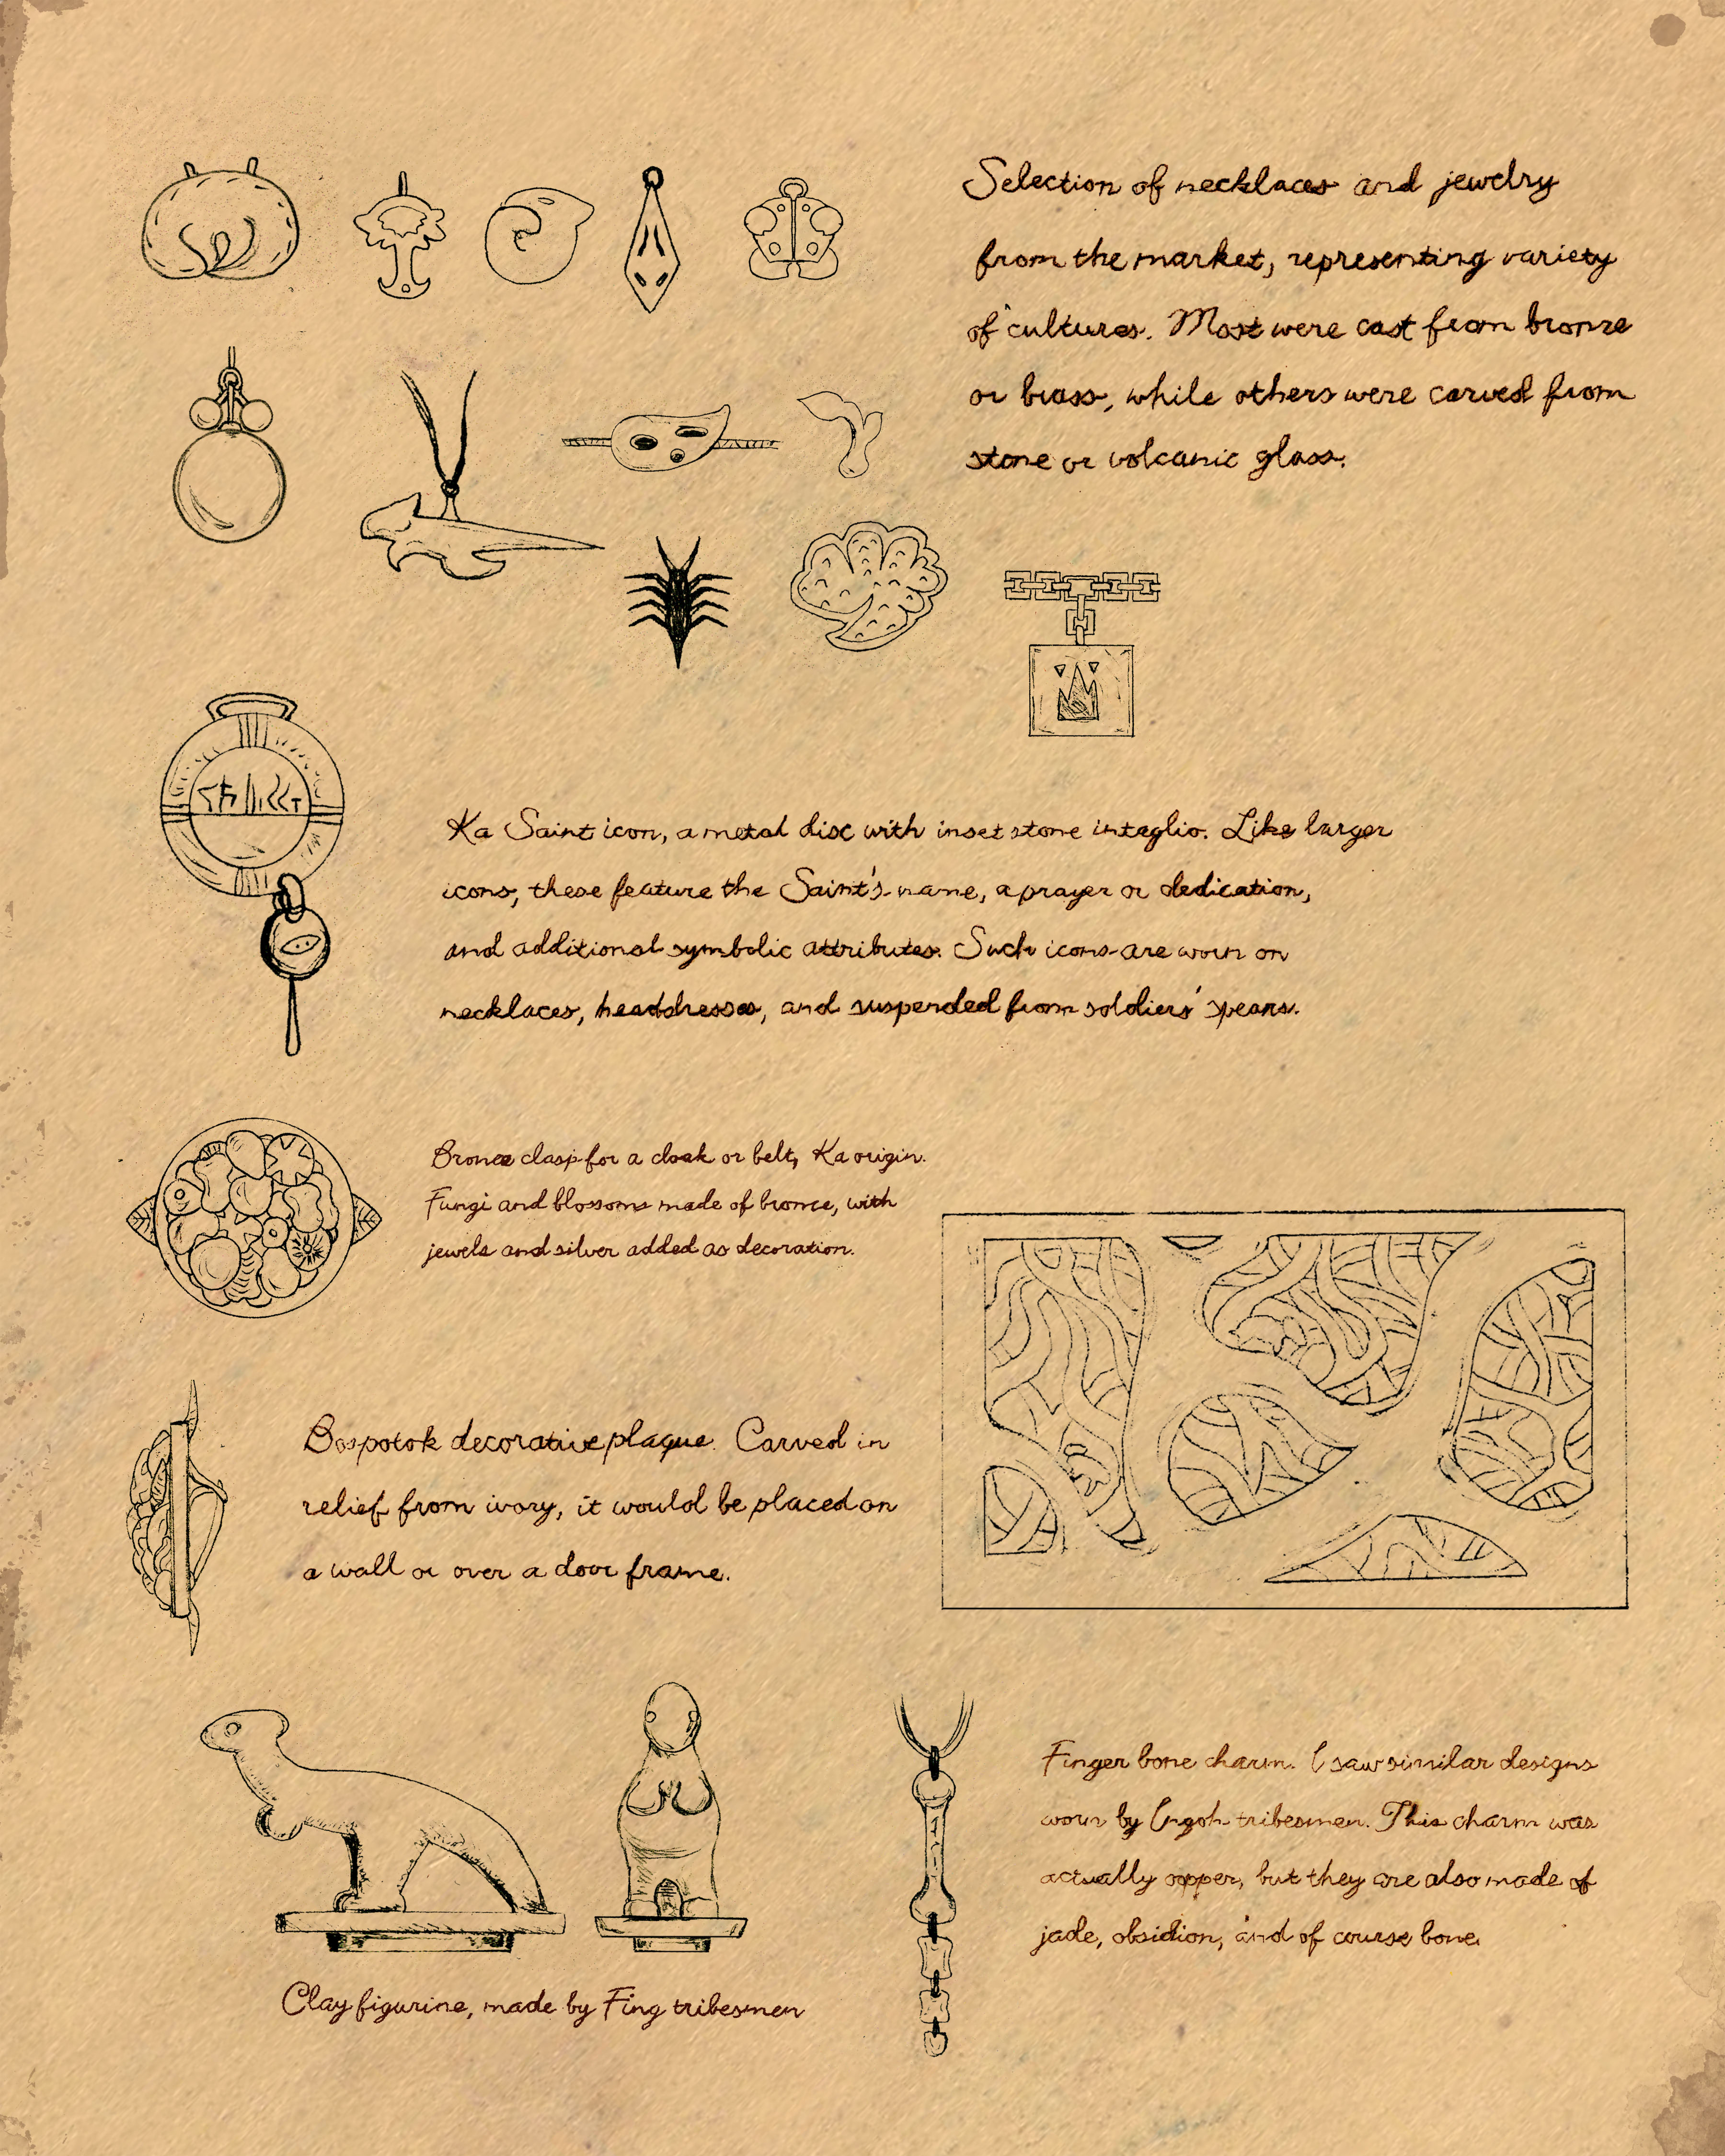 Selection of necklaces and jewelry
from the market, representing variety
of cultures. Most were cast from bronze
or brass, while others were carved from
stone or volcanic glass.
Ka Saint icon, a metal disc with inset stone intaglio. Like larger
icons, these feature the Saint's name, a prayer or dedication,
and additional symbolic attributes. Such icons are worn on
necklaces, headdresses, and suspended from soldiers' spears.
Bronze clasp for a cloak or belt, Ka origin.
Fungi and blossoms made of bronze, with
jewels and silver added as decoration.
Bospotok decorative plaque. Carved in
relief from ivory, it would be placed on
a wall or over a door frame.
Clay figurine, made by Fing tribesmen
Finger bone charm. I saw similar designs
worn by tribesmen. This charm was
actually copper, but they are also made of
jade, obsidion, and of course bone.